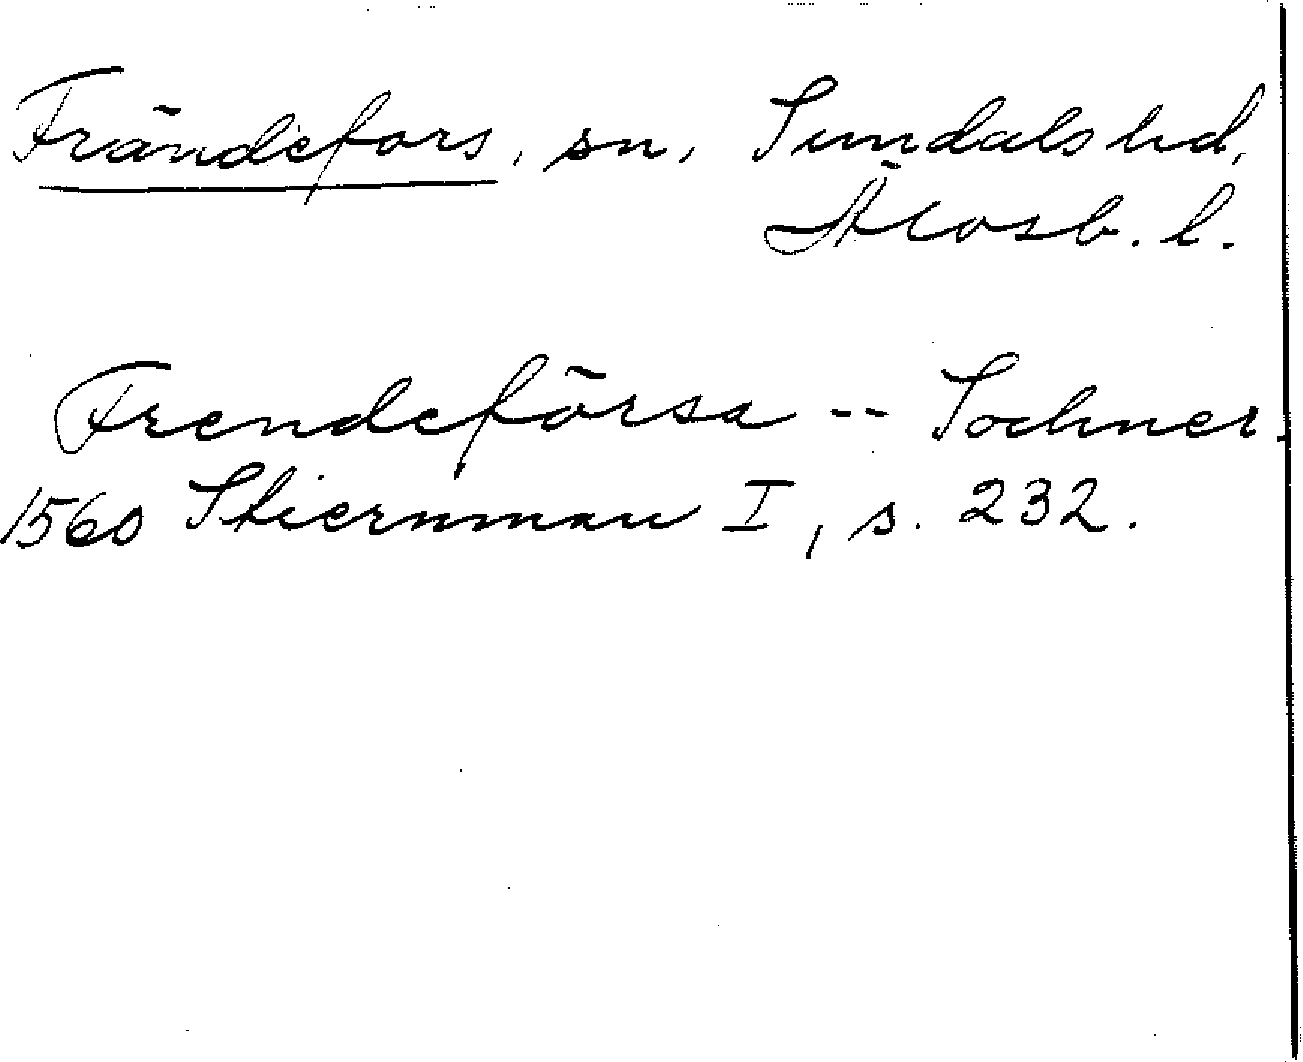 Frändefors, sn, Sundals hd,
Älvsb. l.
Frendeförsa -- Sochner
1560 Stiernman I, s. 232.